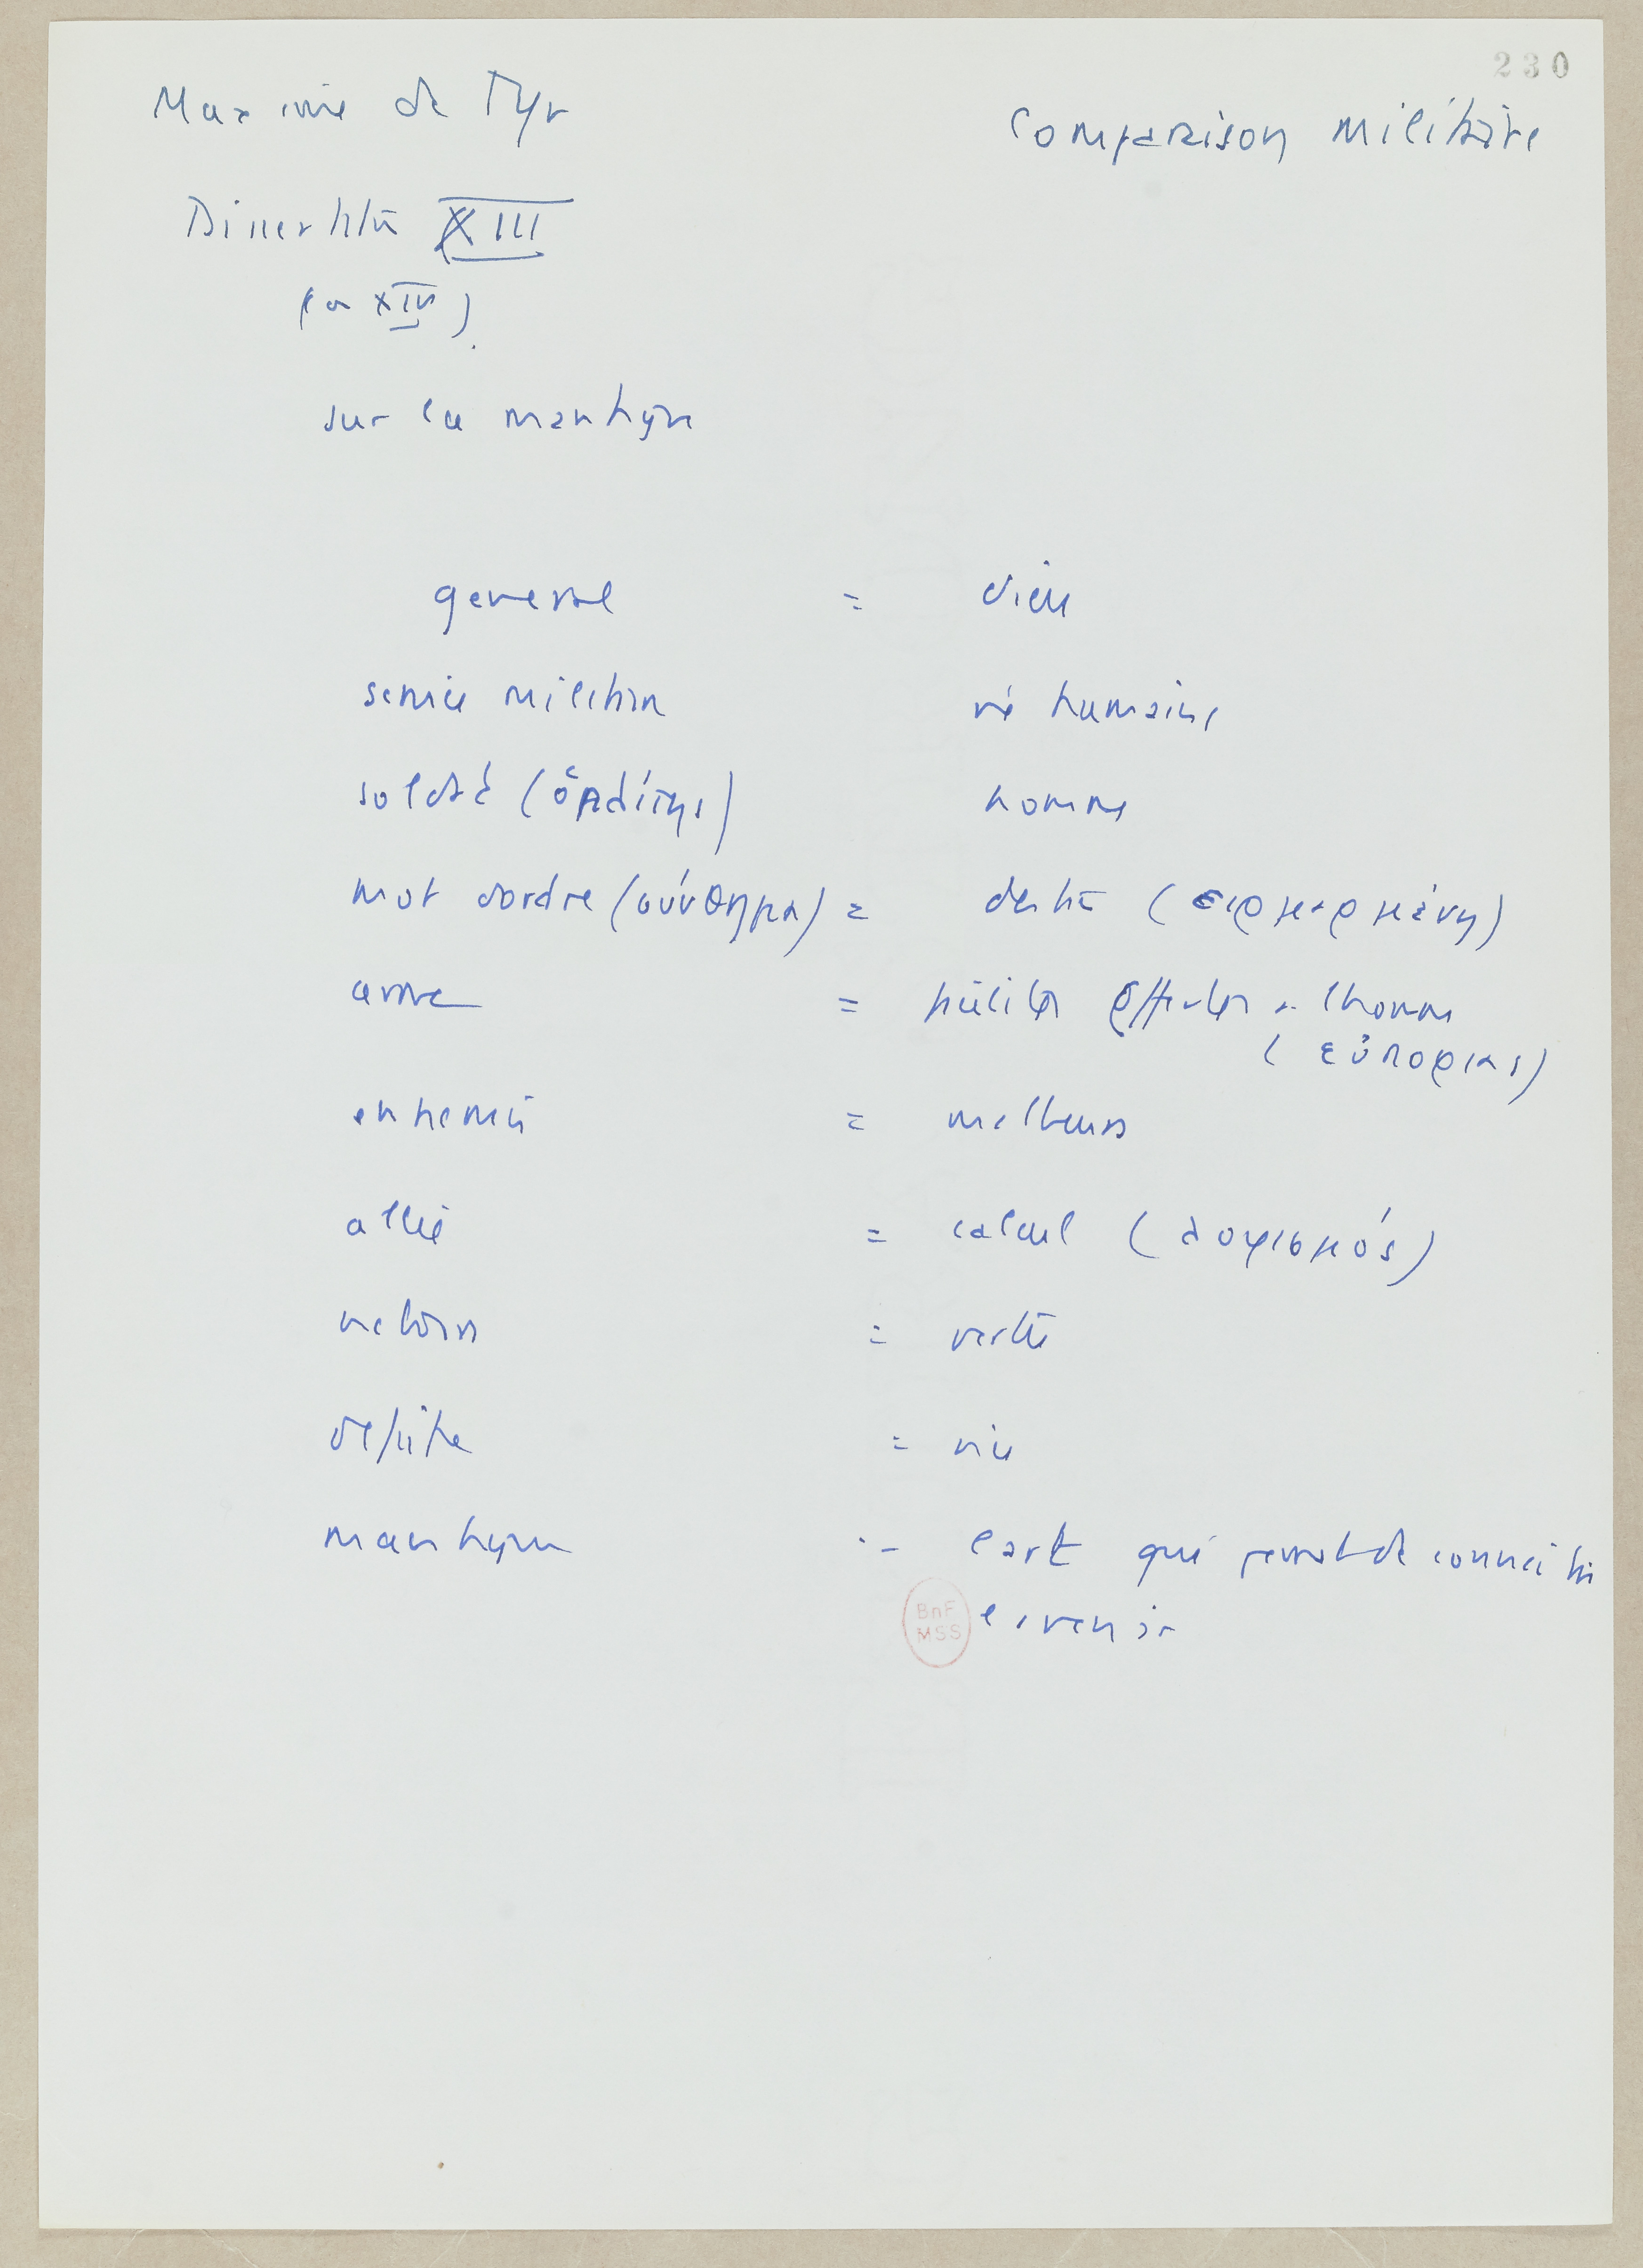 230
Maxime de Tyr
Comparaison militaire
Dissertation XIII
(ou XIV).
sur la mantique
general = dieu
service militaire vie humaine
soldat (ὁπλίτης) homme
mot d'ordre (σύνθημα) = destin (εἱμαρμένη)
arme = facilités offertes à l'homme
(εὐπορίας)
ennemis = malheurs
allié = calcul (λογισμός)
victoire = vertu
défaite = vice
mantique = l'art qui permet de connaître
BnF
MSS
l'avenir